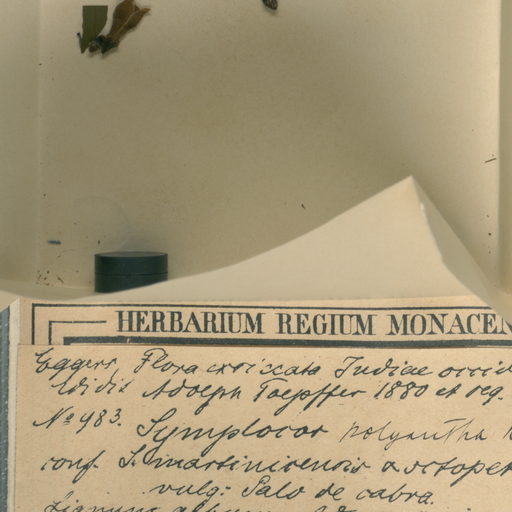 HERBARIUM REGIUM MONACEN
Eggers Flora exsiccata Indiae occid
Edidit Adolph Toepffer 1880 et seq.
No 983. Symplocos polyantha
conf. S. martinicensis & octopet
vulg: Palo de cabra.
Lignum